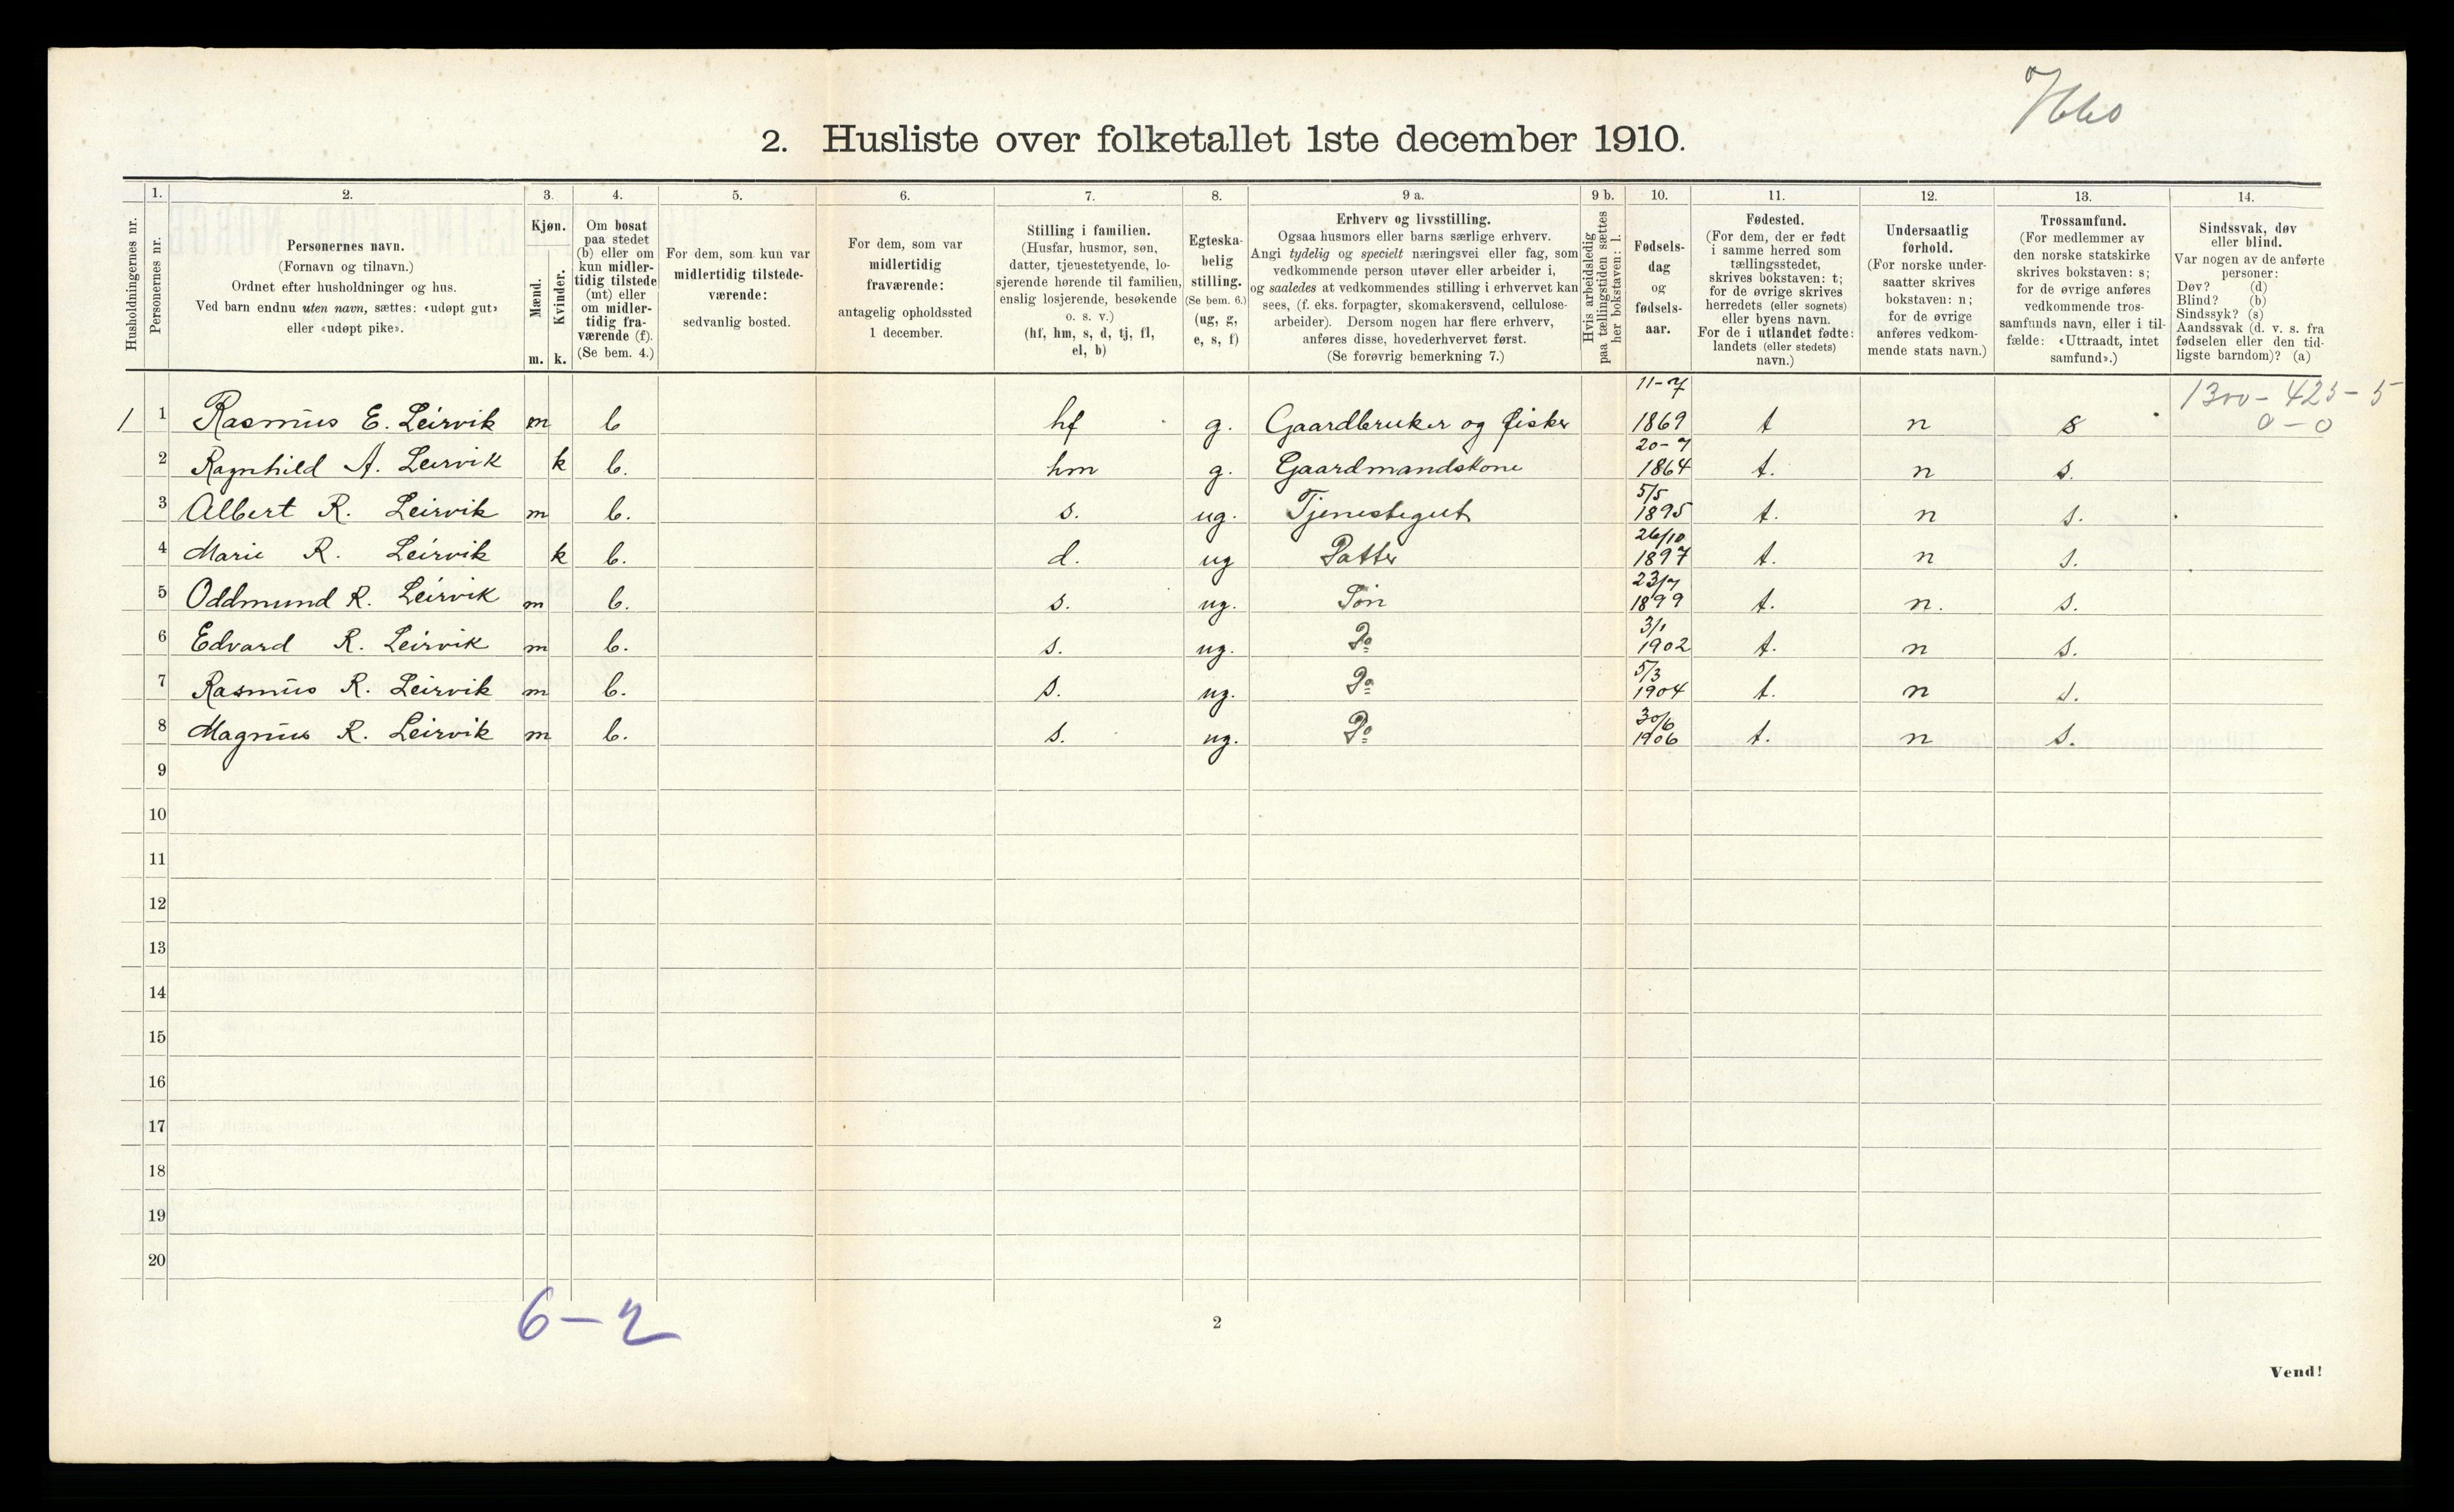 2. Husliste over folketallet 1ste december 1910.
Husholdningernes nr.
1.
Personernes nr.
2.
Personernes navn.
(Fornavn og tilnavn.)
Ordnet efter husholdninger og hus.
Ved barn endnu uten navn, sættes: «udøpt gut»
eller «udøpt pike».
3.
Kjøn.
Mænd.
Kvinder.
m. k.
4.
Om bosat
paa stedet
(b) eller om
kun midler-
tidig tilstede
(mt) eller
om midler-
tidig fra-
værende (f).
(Se bem. 4.)
5.
For dem, som kun var
midlertidig tilstede-
værende:
sedvanlig bosted.
6.
For dem, som var
midlertidig
fraværende:
antagelig opholdssted
1 december.
7.
Stilling i familien.
(Husfar, husmor, søn,
datter, tjenestetyende, lo-
sjerende hørende til familien,
enslig losjerende, besøkende
o. s. v.)
(hf, hm, s, d, tj, fl,
el, b)
8.
Egteska-
belig
stilling.
(Se bem. 6.)
(ug, g,
e, s, f)
9 a.
Erhverv og livsstilling.
Ogsaa husmors eller barns særlige erhverv.
Angi tydelig og specielt næringsvei eller fag, som
vedkommende person utøver eller arbeider i,
og saaledes at vedkommendes stilling i erhvervet kan
sees, (f. eks. forpagter, skomakersvend, cellulose-
arbeider). Dersom nogen har flere erhverv,
anføres disse, hovederhvervet først.
(Se forøvrig bemerkning 7.)
9 b.
Hvis arbeidsledig
paa tællingstiden sættes
her bokstaven: l.
10.
Fødsels-
dag
og
fødsels-
aar.
11.
Fødested.
(For dem, der er født
i samme herred som
tællingsstedet,
skrives bokstaven: t;
for de øvrige skrives
herredets (eller sognets)
eller byens navn.
For de i utlandet fødte:
landets (eller stedets)
navn.)
12.
Undersaatlig
forhold.
(For norske under-
saatter skrives
bokstaven: n;
for de øvrige
anføres vedkom-
mende stats navn.)
13.
Trossamfund.
(For medlemmer av
den norske statskirke
skrives bokstaven: s;
for de øvrige anføres
vedkommende tros-
samfunds navn, eller i til-
fælde: «Uttraadt, intet
samfund».)
14.
Sindssvak, døv
eller blind.
Var nogen av de anførte
personer:
Døv? (d)
Blind? (b)
Sindssyk? (s)
Aandssvak (d. v. s. fra
fødselen eller den tid-
ligste barndom)? (a)
1300 - 425 - 5
0 - 0
1 1 Rasmus E. Leirvik m b hf g. Gaardbruker og fisker 11-7 1869 t n s
2 Ragnhild A. Leirvik k b. hm g. Gaardmandskone 20-7 1864 t. n s.
3 Albert R. Leirvik m b. s. ug. Tjenestegut 5/5 1895 t. n s.
4 Marie R. Leirvik k b. d. ug Datter 26/10 1897 t. n s.
5 Oddmund R. Leirvik m b. s. ug. Søn 23/7 1899 t. n. s.
6 Edvard R. Leirvik m b. s. ug. Do 3/1 1902 t. n s.
7 Rasmus R. Leirvik m b. s. ug. Do 5/3 1904 t. n s.
8 Magnus R. Leirvik m b. s. ug. Do 30/6 1906 t. n s.
9
10
11
12
13
14
15
16
17
18
19
20
6-2
2
Vend!